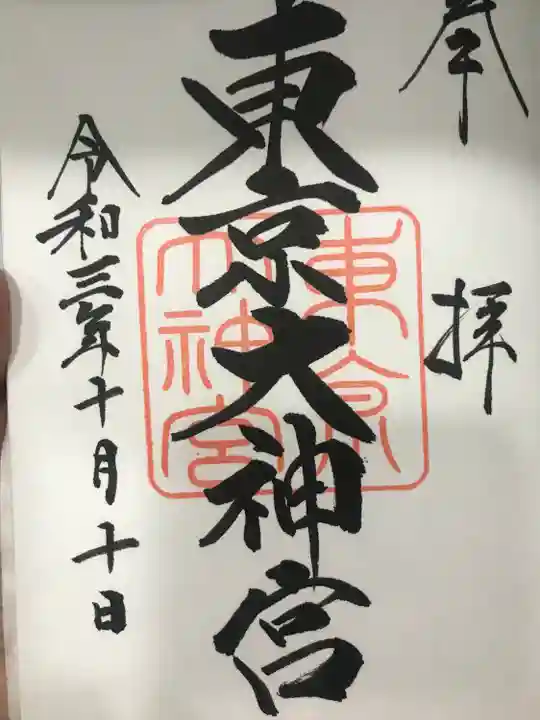 奉拝
東京大神宮
東京
大神宮
令和三年十月十日